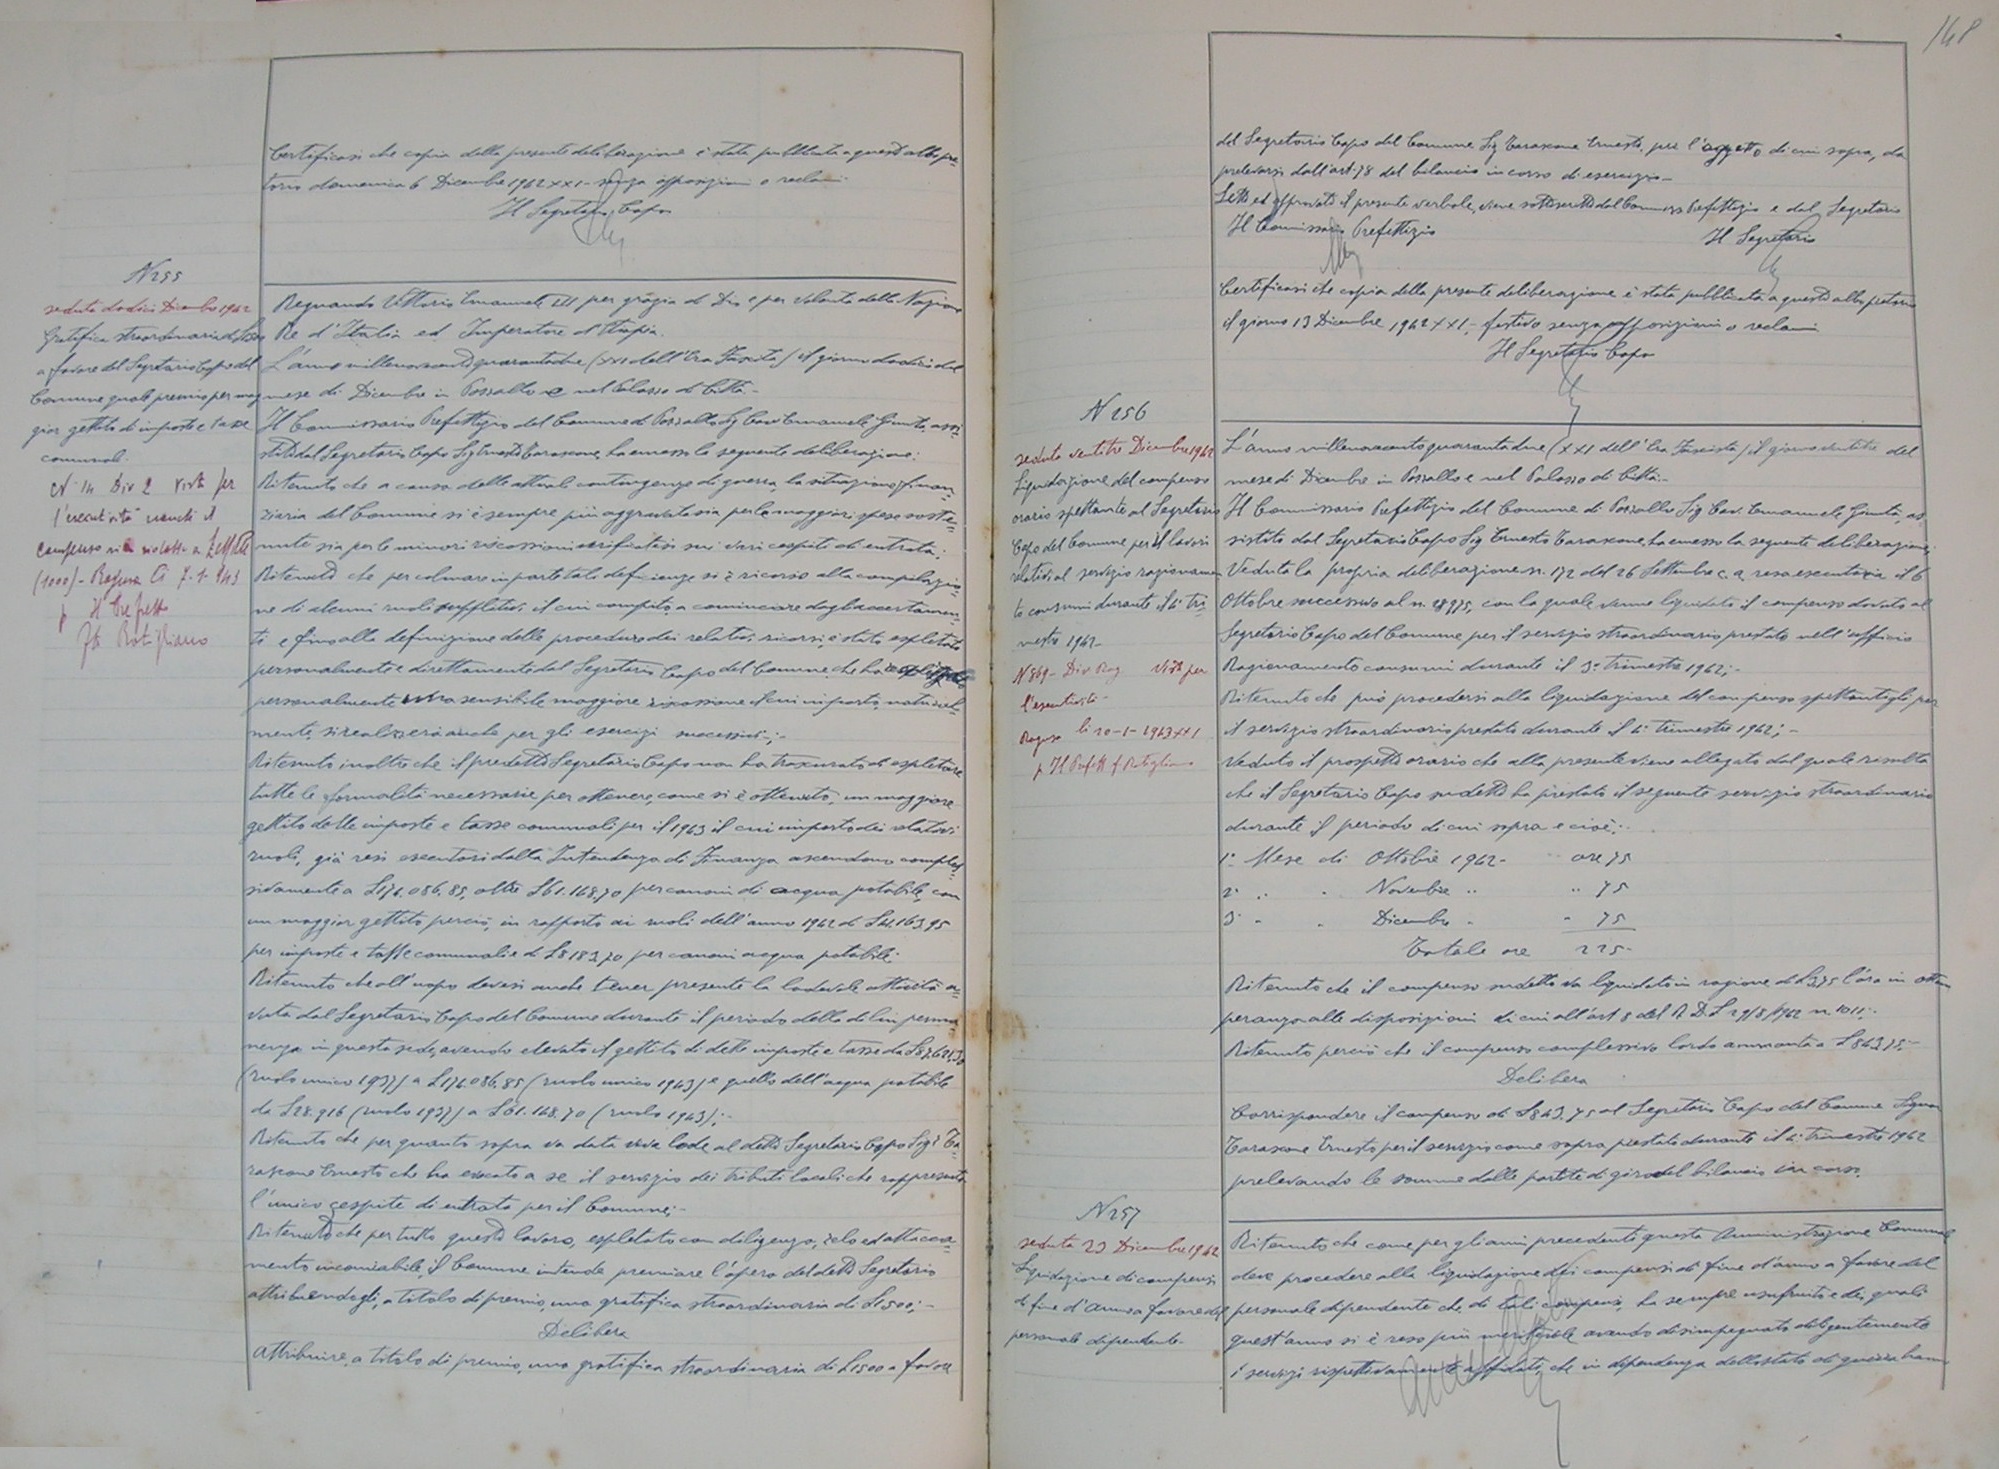 Certificasi che copia della presente deliberazione è stata pubblicata a quest'albo pre-
torio domenica 6 Dicembre 1942 XXI - senza opposizioni o reclami.
Il Segretario Capo
N 255
seduta dodici Dicembre 1942
Gratifica straordinaria di L 1500
a favore del Segretario Capo del
Comune quale premio per mag
gior gettito di imposte e tasse
comunali.
N 14 Div 2 Visto per
l'esecutività purché il
compenso sia ridotto a L mille
(1000) - Ragusa li 7-1-943
p Il Prefetto
Regnando Vittorio Emanuele III per grazia di Dio e per volontà della Nazione
Re d'Italia ed Imperatore d'Etiopia.
L'anno millenovecentoquarantadue (XXI dell'Era Fascista) il giorno dodici del
mese di Dicembre in Pozzallo e nel Palazzo di Città -
Il Commissario Prefettizio del Comune di Pozzallo Sig Cav Emanuele Giunta, assi-
stito dal Segretario Capo Sig Ernesto Tarascone, ha emesso la seguente deliberazione:
Ritenuto che a causa delle attuali contingenze di guerra, la situazione finan-
ziaria del Comune si è sempre più aggravata sia per le maggiori spese soste-
nute sia per le minori riscossioni verificatesi sui vari cespiti di entrata;
Ritenuto che per colmare in parte tali deficienze si è ricorso alla compilazio-
ne di alcuni ruoli suppletivi il cui compito, a cominciare dagli accertamen-
ti e fino alla definizione delle procedure dei relativi ricorsi, è stato espletato
personalmente e direttamente dal Segretario Capo del Comune che ha
personalmente una sensibile maggiore riscossione il cui importo, natural-
mente, si realizzerà anche per gli esercizi successivi;-
Ritenuto inoltre che il predetto Segretario Capo non ha trascurato di espletare
tutte le formalità necessarie per ottenere, come si è ottenuto, un maggiore
gettito delle imposte e tasse comunali per il 1943 il cui importo dei relativi
ruoli, già resi esecutori dalla Intendenza di Finanza ascendono comples-
sivamente a L 174.086,85, oltre L 61.148,70 per canoni di acqua potabile, con
un maggior gettito perciò, in rapporto ai ruoli dell'anno 1942 di L 44.163,95
per imposte e tasse comunali e di L 8183,70 per canoni acqua potabile;
Ritenuto che all'uopo devesi anche tener presente la lodevole attività a-
vuta dal Segretario Capo del Comune durante il periodo della di lui perma
nenza in questa sede, avendo elevato il gettito di dette imposte e tasse da L 87.621,30
(ruolo unico 1937) a L 174.086,85 (ruolo unico 1943) e quello dell'acqua potabile
da L 28.916 (ruolo 1937) a L 61.148.70 (ruolo 1943);-
Ritenuto che per quanto sopra va data viva lode al detto Segretario Capo Sig. Ta-
rascone Ernesto che ha avocato a se il servizio dei tributi locali che rappresenta
l'unico cespite di entrata per il Comune;-
Ritenuto che per tutto questo lavoro, espletato con diligenza, zelo ed attacca-
mento incomiabile, il Comune intende premiare l'opera del detto Segretario
attribuendogli, a titolo di premio, una gratifica straordinaria di L 1500;-
Delibera
Attribuire, a titolo di premio, una gratifica straordinaria di L 1500 a favore
148
del Segretario Capo del Comune Sig Tarascone Ernesto, per l'oggetto di cui sopra, da
prelevarsi dall'art. 78 del bilancio in corso di esercizio -
Letto ed approvato il presente verbale, viene sottoscritto dal Commiss Prefettizio e dal Segretario
Il Commissario Prefettizio Il Segretario
Certificasi che copia della presente deliberazione è stata pubblicata a quest'albo pretorio
il giorno 13 Dicembre 1942 XXI, - festivo senza opposizioni o reclami
Il Segretario Capo
N 256
seduta ventitre Dicembre 1942
Liquidazione del compenso
orario spettante al Segretario
Capo del Comune per il lavori
relativi al servizio ragionamen
to consumi durante il 4° tri-
mestre 1942 -
N 869 - Div Rag Visto per
l'esecutività -
Ragusa li 20-1-1943 XXI
p Il Prefetto
L'anno millenovecentoquarantadue (XXI dell'Era Fascista) il giorno ventitre del
mese di Dicembre in Pozzallo e nel Palazzo di Città:-
Il Commissario Prefettizio del Comune di Pozzallo Sig Cav. Emanuele Giunta, as
sistito dal Segretario Capo Sig Ernesto Tarascone, ha emesso la seguente deliberazione:
Veduta la propria deliberazione n. 172 del 26 Settembre c. a, resa esecutoria il 6
Ottobre successivo al n. 28975, con la quale venne liquidato il compenso dovuto al
Segretario Capo del Comune per il servizio straordinario prestato nell'ufficio
Ragionamento consumi durante il 3° trimestre 1942;-
Ritenuto che può procedersi alla liquidazione del compenso spettantegli per
il servizio straordinario prestato durante il 4° trimestre 1942;-
Veduto il prospetto orario che alla presente viene allegato dal quale risulta
che il Segretario Capo sudetto ha prestato il seguente servizio straordinario
durante il periodo di cui sopra e cioè:-
1° Mese di Ottobre 1942 - ore 75
2° " " Novembre " " 75
3° " " Dicembre " " 75
Totale ore 225-
Ritenuto che il compenso sudetto va liquidato in ragione di L 3,75 l'ora in ottem
peranza alle disposizioni di cui all'art 8 del R D L 29/8/1942 n. 1011;-
Ritenuto perciò che il compenso complessivo lordo ammonta a L 843,75;-
Delibera
Corrispondere il compenso di L 843,75 al Segretario Capo del Comune Signor
Tarascone Ernesto per il servizio come sopra prestato durante il 4° trimestre 1942
prelevando le somme dalle partite di giro del bilancio in corso.
N 257
seduta 23 Dicembre 1942
Liquidazione di compensi
di fine d'anno a favore del
personale dipendente.
Ritenuto che come per gli anni precedenti questa Amministrazione Comunale
deve procedere alla liquidazione dei compensi di fine d'anno a favore del
personale dipendente che di tali compensi, ha sempre usufruito e dei quali
quest'anno si è reso più meritevole avendo disimpegnato diligentemente
i servizi rispettivamente affidati, che in dipendenza dello stato di guerra hanno